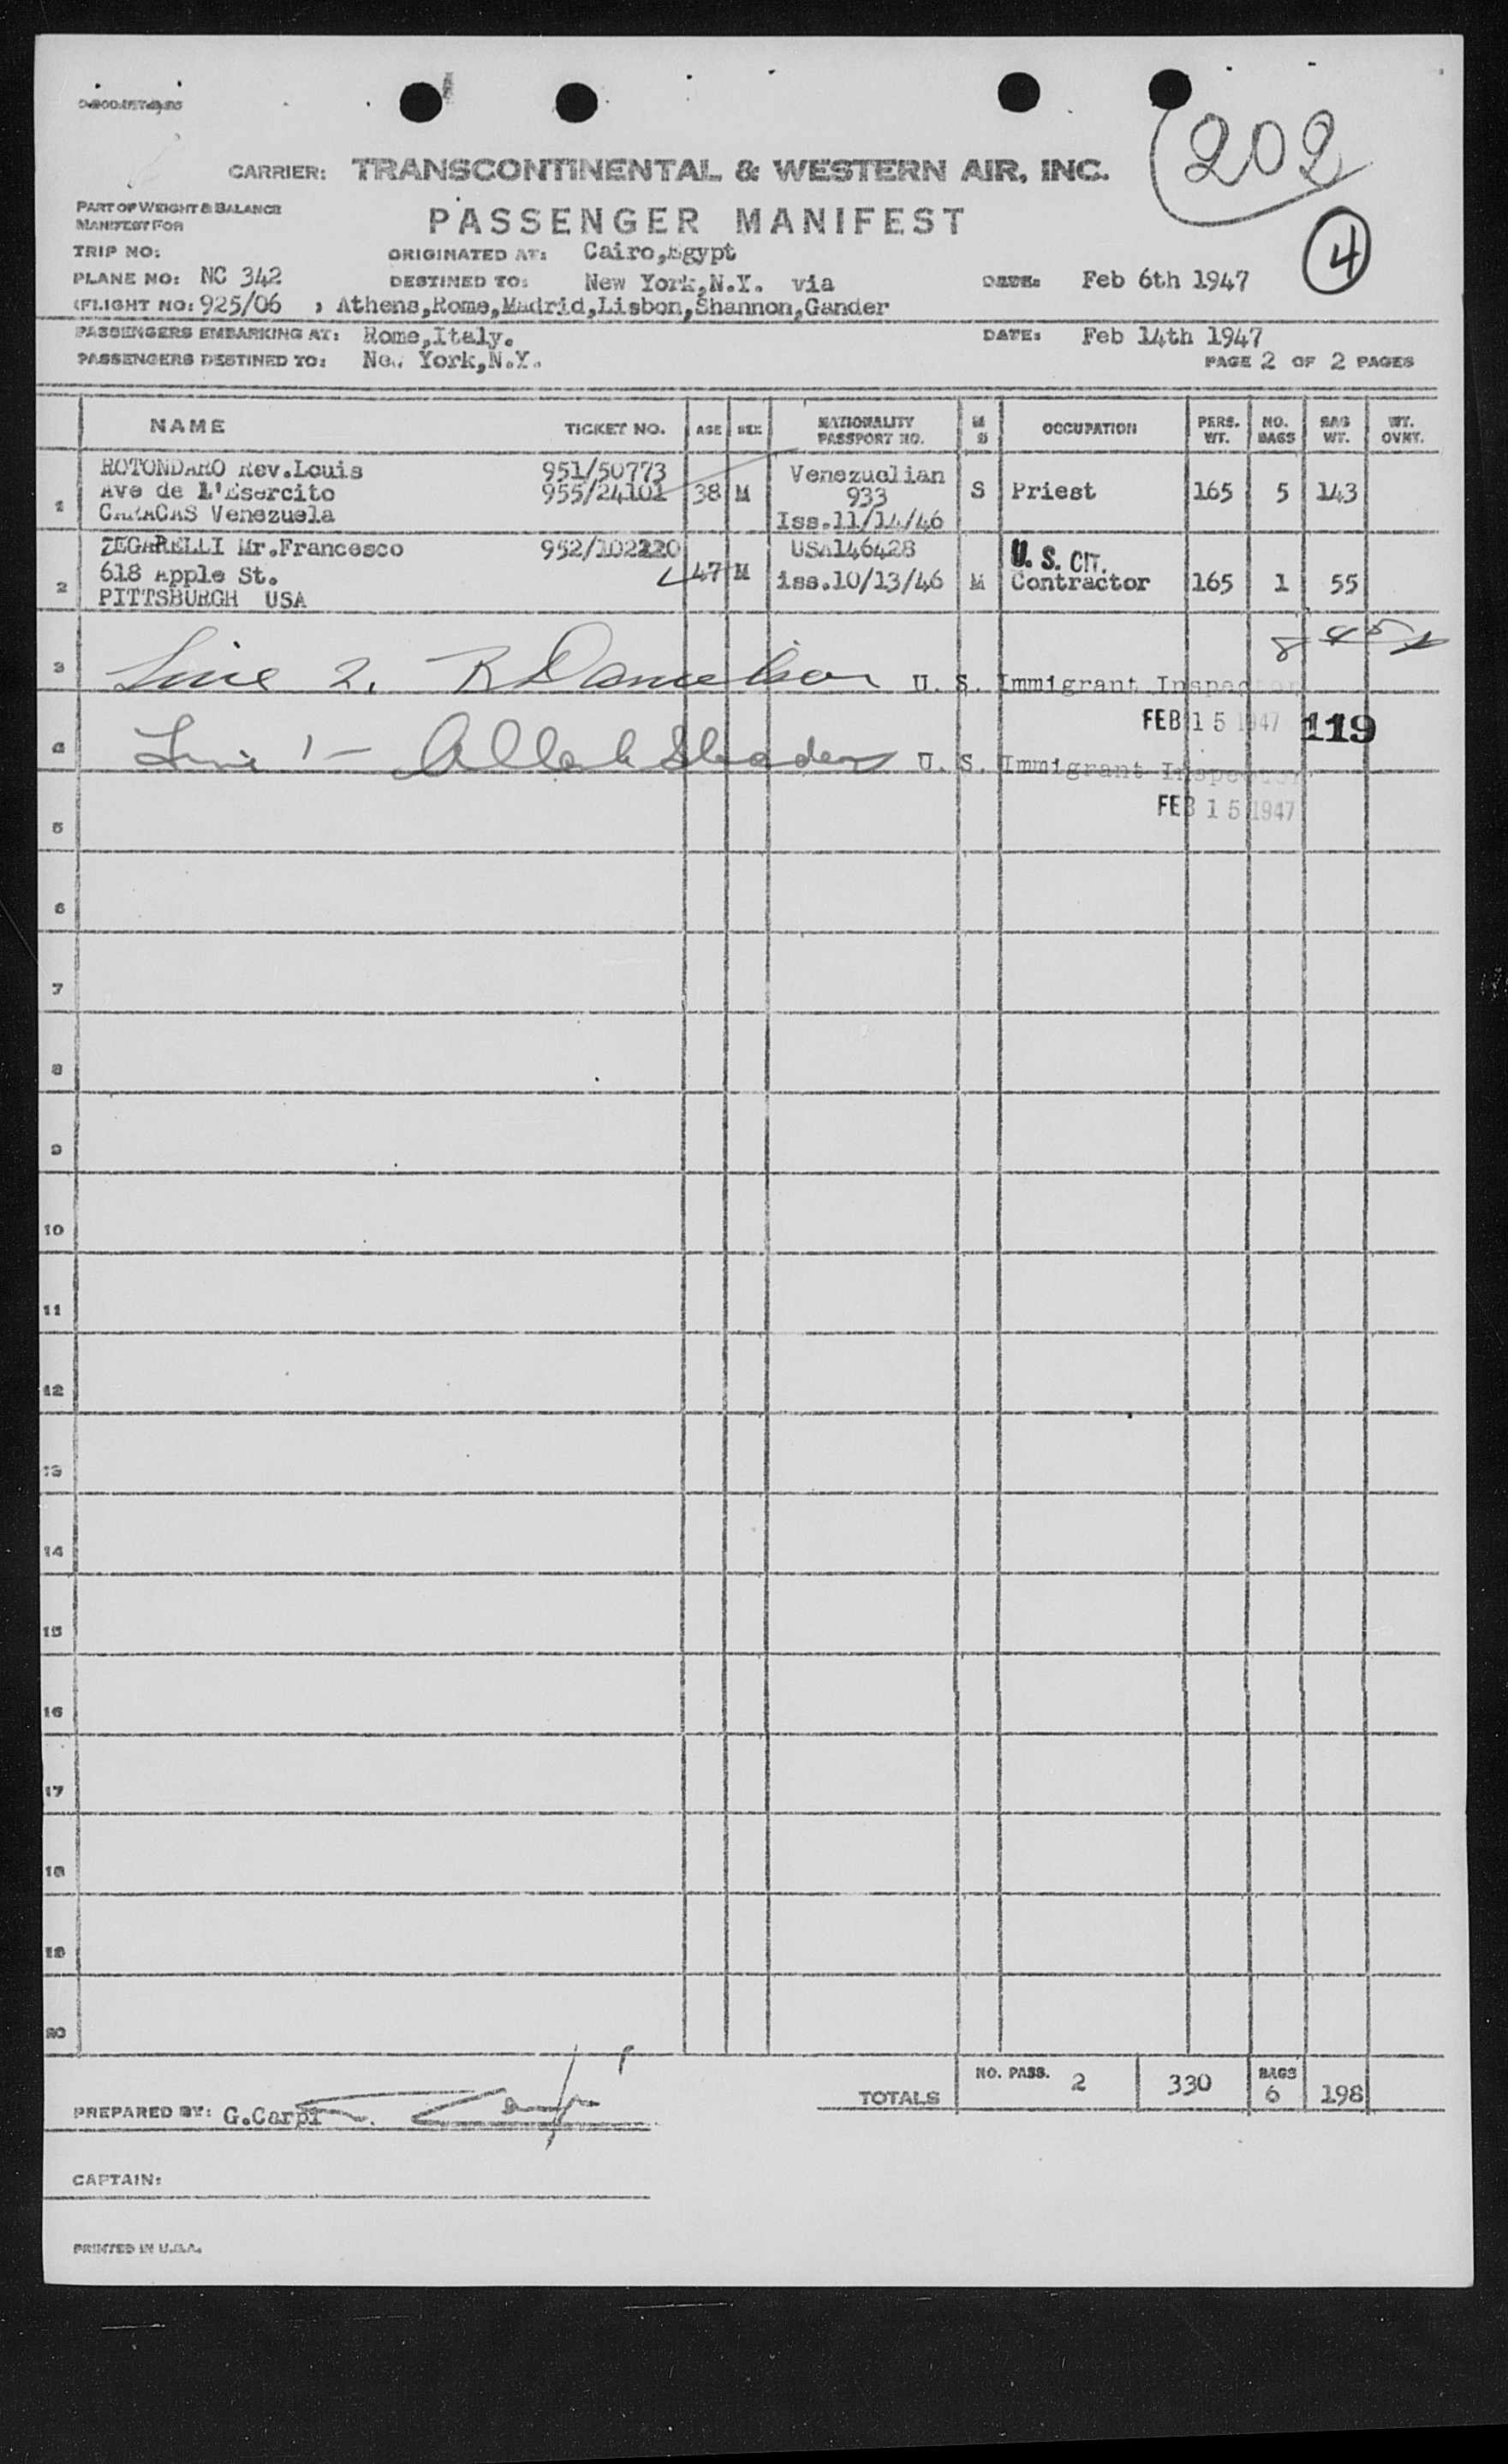 202
CARRIER: TRANSCONTINENTAL & WESTERN AIR, INC.
PART OF WEIGHT & BALANCE
MANIFEST FOR
PASSENGER MANIFEST
4
TRIP NO:
ORIGINATED AT: Cairo,Egypt
PLANE NO: NC 342
DESTINED TO: New York,N.Y. via
DATE: Feb 6th 1947
(FLIGHT NO: 925/06 , Athens,Rome,Madrid,Lisbon,Shannon,Gander
PASSENGERS EMBARKING AT: Rome,Italy.
DATE: Feb 14th 1947
PASSENGERS DESTINED TO: New York,N.Y.
PAGE 2 OF 2 PAGES
NAME TICKET NO. AGE SEX NATIONALITY PASSPORT NO. M S OCCUPATION PERS. WT. NO. BAGS BAG WT. WT. OVNT.
ROTONDARO Rev.Louis 951/50773 Venezuelian
1 Ave de L'Esercito 955/24101 38 M 933 S Priest 165 5 143
CARACAS Venezuela Iss.11/14/46
ZEGARELLI Mr.Francesco 952/102220 USA146428 U. S. CIT.
2 618 Apple St. 47 M iss.10/13/46 M Contractor 165 1 55
PITTSBURGH USA
3 Line 2. R Danielson U. S. Immigrant Inspector
FEB 15 1947 119
4 Line 1 - U. S. Immigrant Inspector
FEB 15 1947
5
6
7
8
9
10
11
12
13
14
15
16
17
18
19
20
TOTALS NO. PASS. 2 330 BAGS 6 198
PREPARED BY: G.Carpi
CAPTAIN:
PRINTED IN U.S.A.